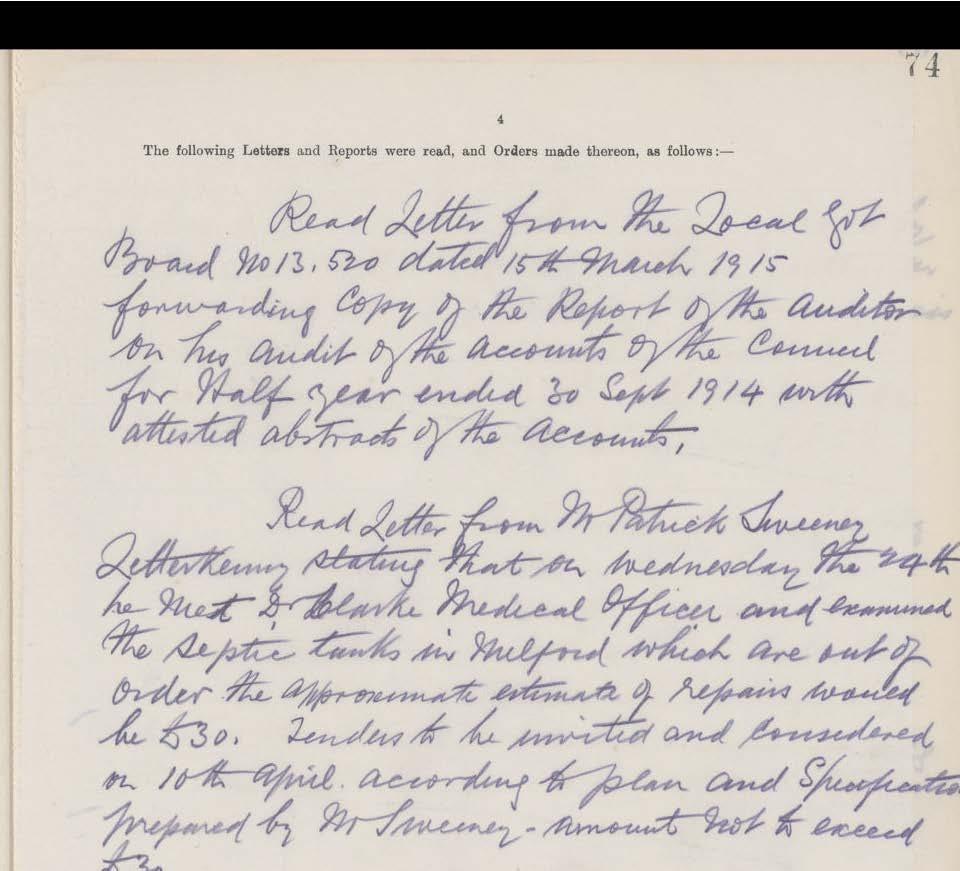 74
4
The following Letters and Reports were read, and Orders made thereon, as follows:—
Read Letter from the Local Govt
Board No 13.520 dated 15th March 1915
forwarding Copy of the Report of the Auditor
on his audit of the accounts of the Council
for Half year ended 30 Sept 1914 with
attested abstracts of the accounts,
Read Letter from Mr Patrick Sweeney
Letterkenny stating that on Wednesday the 24th
he met Dr Clarke Medical Officer and examined
the septic tanks in Milford which are out of
order the approximate estimate of repairs would
be £30. Tenders to be invited and considered
on 10th April. according to plan and Specification
prepared by Mr Sweeney - amount not to exceed
£30